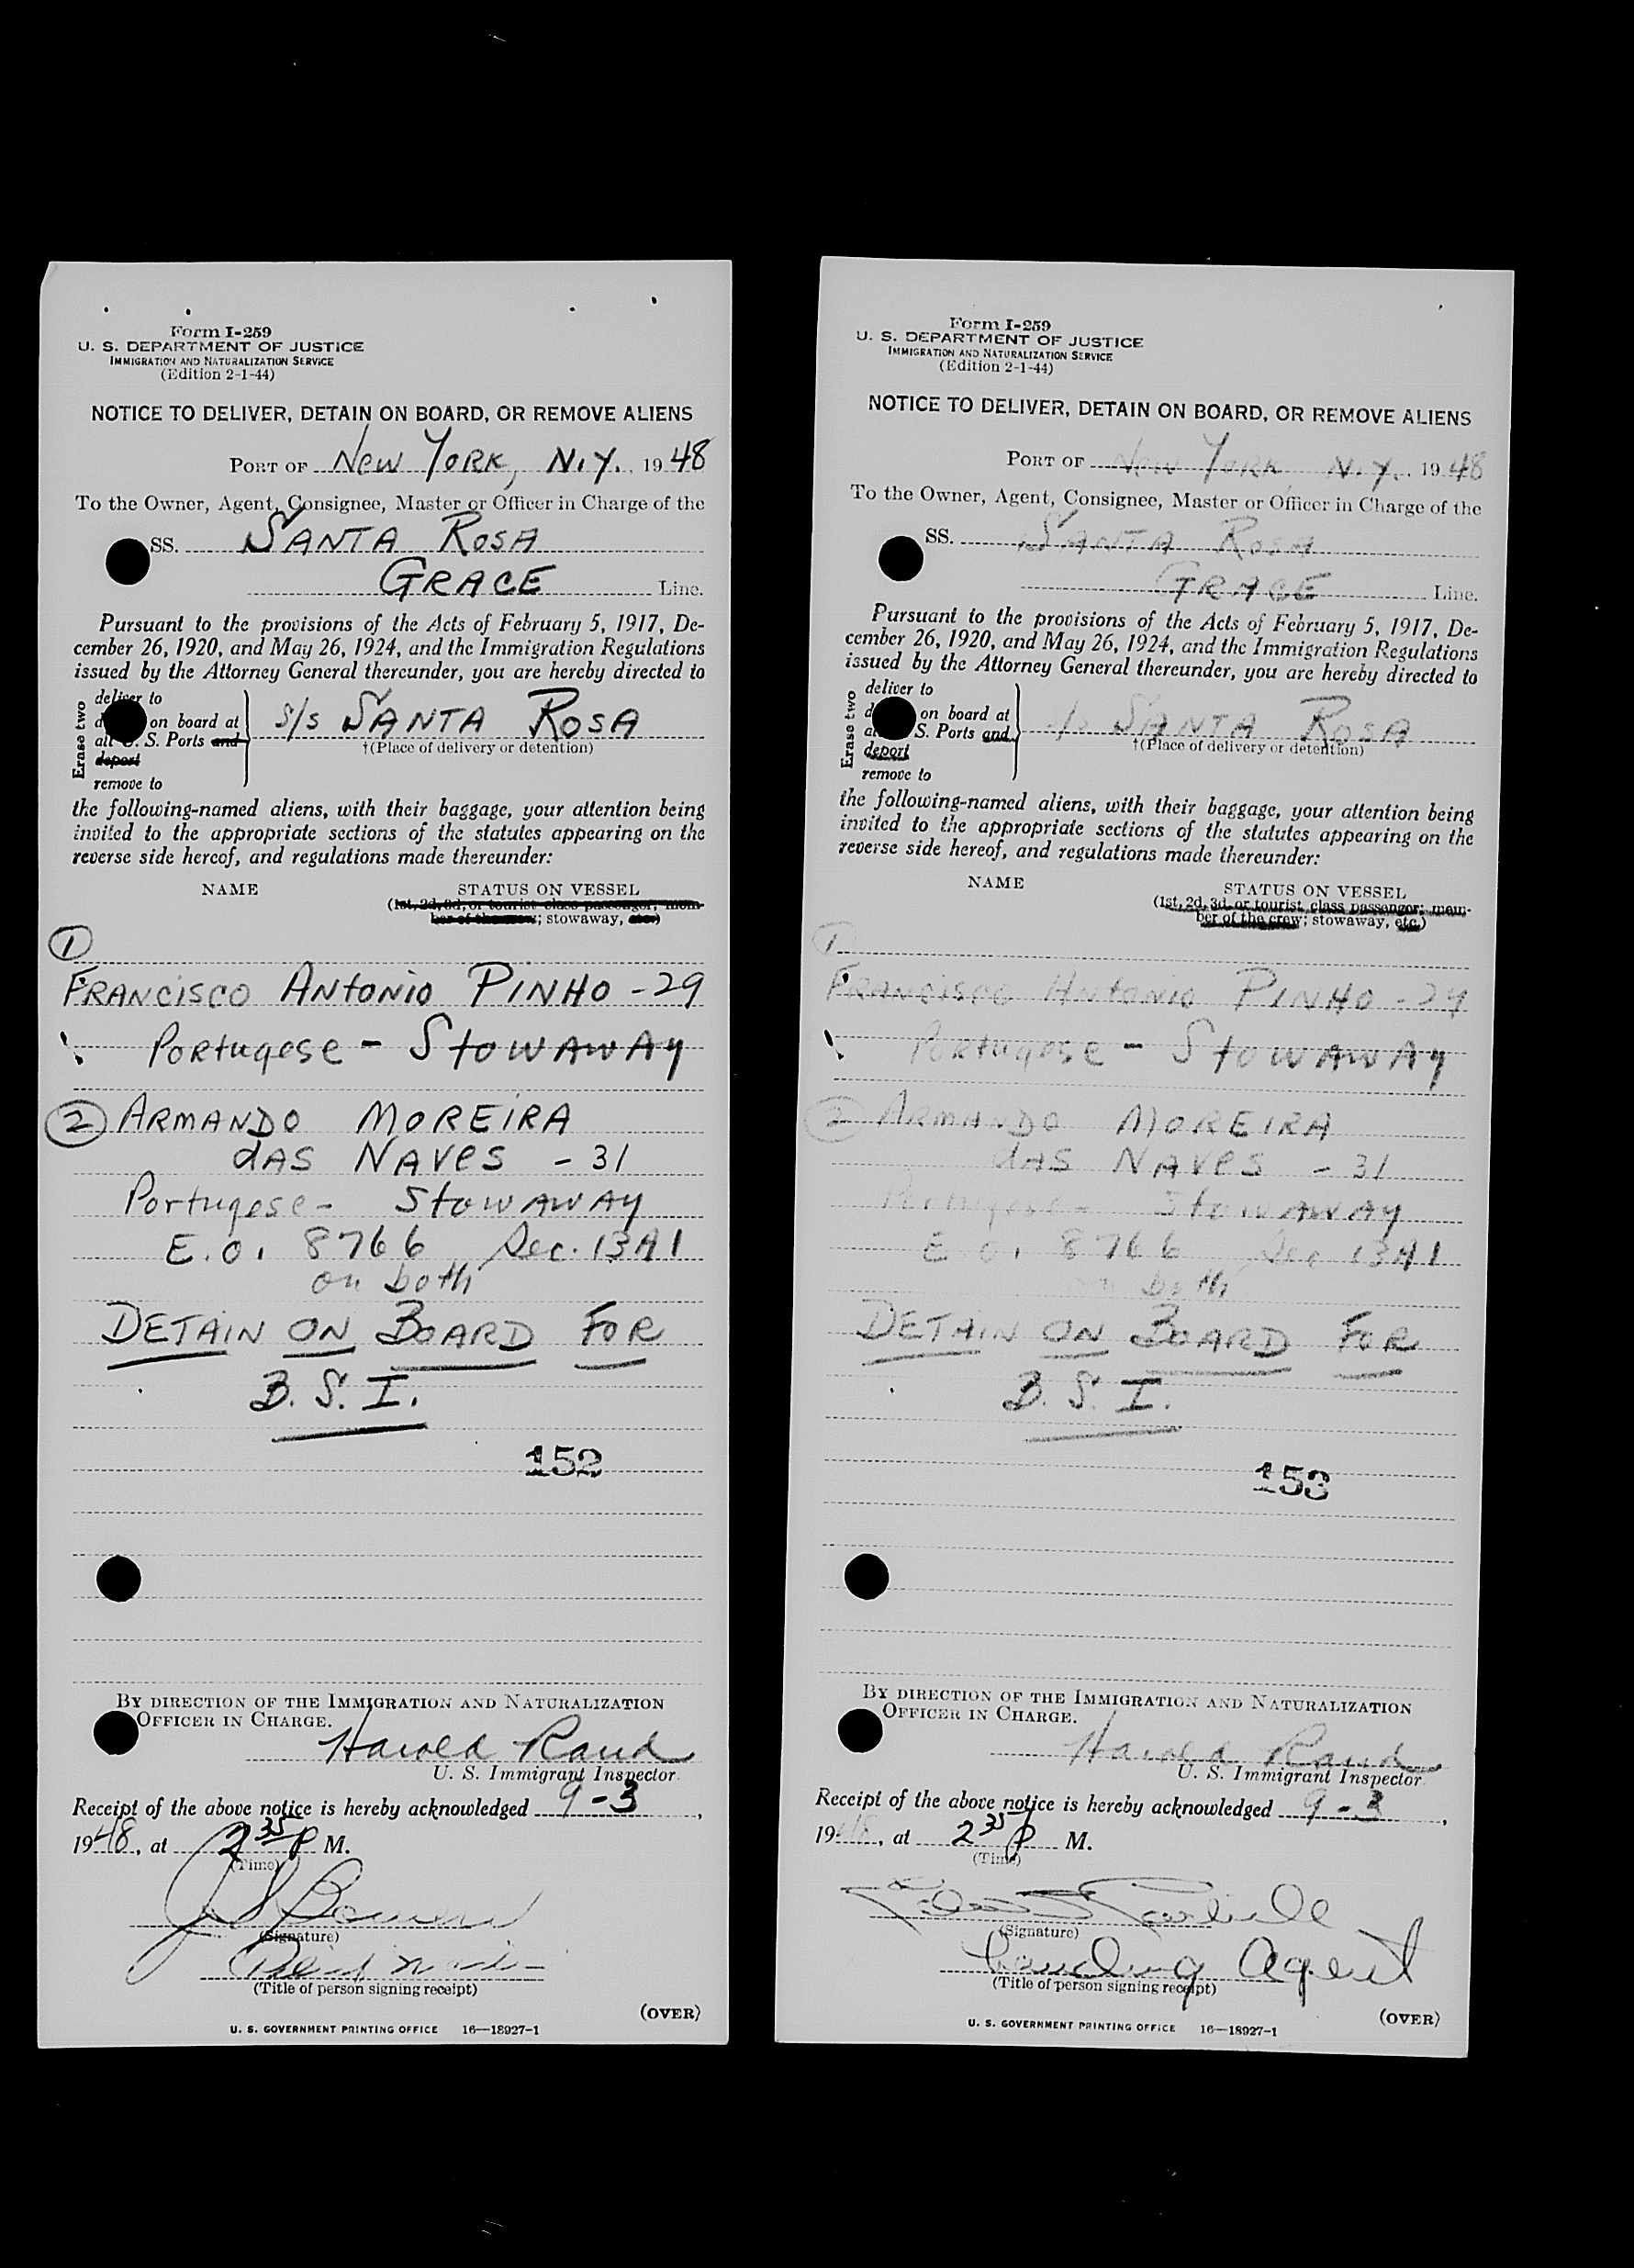 Form I-259
U. S. DEPARTMENT OF JUSTICE
IMMIGRATION AND NATURALIZATION SERVICE
(Edition 2-1-44)
NOTICE TO DELIVER, DETAIN ON BOARD, OR REMOVE ALIENS
PORT OF New YORK, N.Y. 1948
To the Owner, Agent, Consignee, Master or Officer in Charge of the
SS. SANTA ROSA
GRACE Line.
Pursuant to the provisions of the Acts of February 5, 1917, De-
cember 26, 1920, and May 26, 1924, and the Immigration Regulations
issued by the Attorney General thereunder, you are hereby directed to
Erase two
deliver to
on board at
all U. S. Ports and
deport
remove to
S/S SANTA ROSA
†(Place of delivery or detention)
the following-named aliens, with their baggage, your attention being
invited to the appropriate sections of the statutes appearing on the
reverse side hereof, and regulations made thereunder:
NAME STATUS ON VESSEL
(1st, 2d, 3d, or tourist class passenger; mem-
ber of the crew; stowaway, etc.)
1
FRANCISCO ANtONiO PINHO - 29
Portugese - StowAwAy
2 ARMANDO MOREIRA
dAS NAVeS - 31
Portugese - StowAwAy
E.O. 8766 Sec. 13A1
on both
DETAIN ON BOARD FOR
B. S. I.
152
BY DIRECTION OF THE IMMIGRATION AND NATURALIZATION
OFFICER IN CHARGE.
Harold Rand
U. S. Immigrant Inspector.
Receipt of the above notice is hereby acknowledged 9-3,
1948, at 2 35 P M.
(Time)
(Signature)
(Title of person signing receipt)
(OVER)
U. S. GOVERNMENT PRINTING OFFICE 16—18927-1
Form I-259
U. S. DEPARTMENT OF JUSTICE
IMMIGRATION AND NATURALIZATION SERVICE
(Edition 2-1-44)
NOTICE TO DELIVER, DETAIN ON BOARD, OR REMOVE ALIENS
PORT OF New YORK N.Y. 1948
To the Owner, Agent, Consignee, Master or Officer in Charge of the
SS. SANTA ROSA
GRACE Line.
Pursuant to the provisions of the Acts of February 5, 1917, De-
cember 26, 1920, and May 26, 1924, and the Immigration Regulations
issued by the Attorney General thereunder, you are hereby directed to
Erase two
deliver to
on board at
S. Ports and
deport
remove to
S/S SANTA ROSA
†(Place of delivery or detention)
the following-named aliens, with their baggage, your attention being
invited to the appropriate sections of the statutes appearing on the
reverse side hereof, and regulations made thereunder:
NAME STATUS ON VESSEL
(1st, 2d, 3d, or tourist class passenger; mem-
ber of the crew; stowaway, etc.)
1
FRANCISCO ANtONiO PINHO - 29
Portugese - StowAwAy
2 ARMANDO MOREIRA
dAS NAVeS - 31
Portugese - StowAwAy
E.O. 8766 Sec 13A1
on both
DETAIN ON BOARD FOR
B. S. I.
153
BY DIRECTION OF THE IMMIGRATION AND NATURALIZATION
OFFICER IN CHARGE.
Harold Rand
U. S. Immigrant Inspector.
Receipt of the above notice is hereby acknowledged 9-3,
1948, at 2 35 P M.
(Time)
(Signature)
Landing Agent
(Title of person signing receipt)
(OVER)
U. S. GOVERNMENT PRINTING OFFICE 16—18927-1